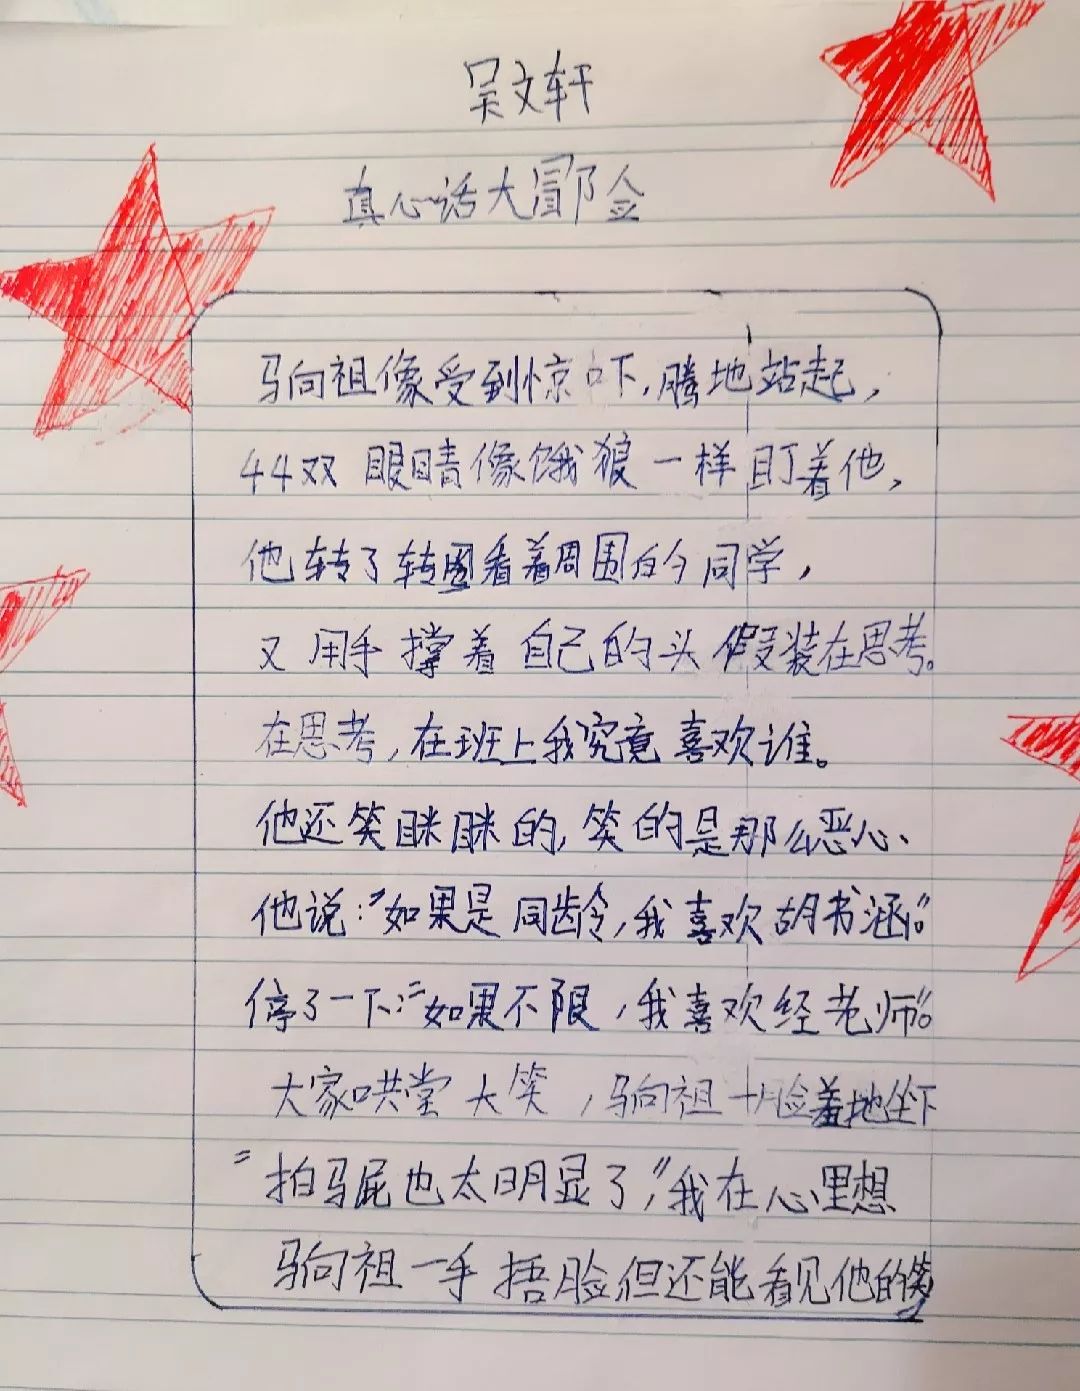 吴文轩
真心话大冒险
马向祖像受到惊吓,腾地站起,
44双眼睛像饿狼一样盯着他,
他转了转圈看着周围的同学,
又用手撑着自己的头假装在思考。
在思考,在班上我究竟喜欢谁。
他还笑眯眯的,笑的是那么恶心、
他说:"如果是同龄,我喜欢胡书涵"。
停了一下:"如果不限,我喜欢经老师"。
大家哄堂大笑,马向祖脸羞地坐下
"拍马屁也太明显了,"我在心里想
马向祖一手捂脸,但还能看见他的笑